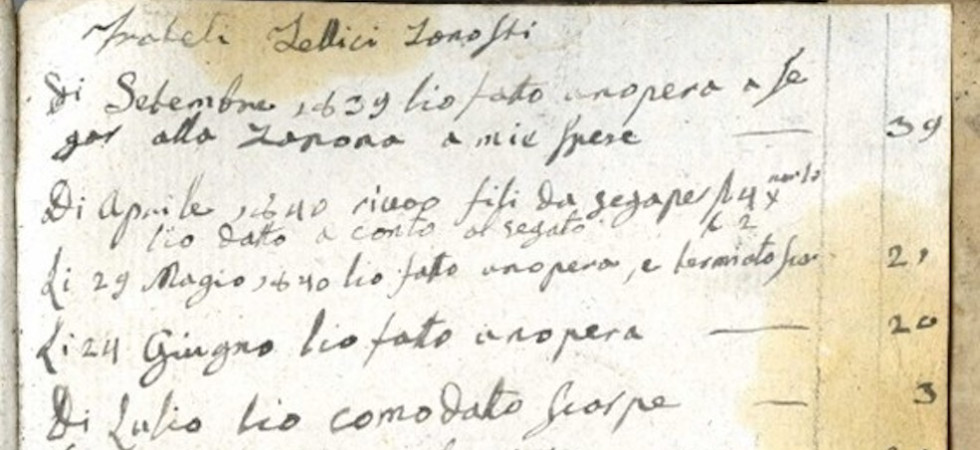 Frateli Zellici Zanosti
Di Setembre 1839 lio fatto unopera a se
gar alla Zanona a mie spese — 39
Di Aprile 1840 da segaper 4
lio datto a conto al segato 2
Li 29 Magio 1840 lio fatto unopera, e 21
Li 24 Giugno lio fatto unopera — 20
Di Lulio lio comodato scarpe — 3